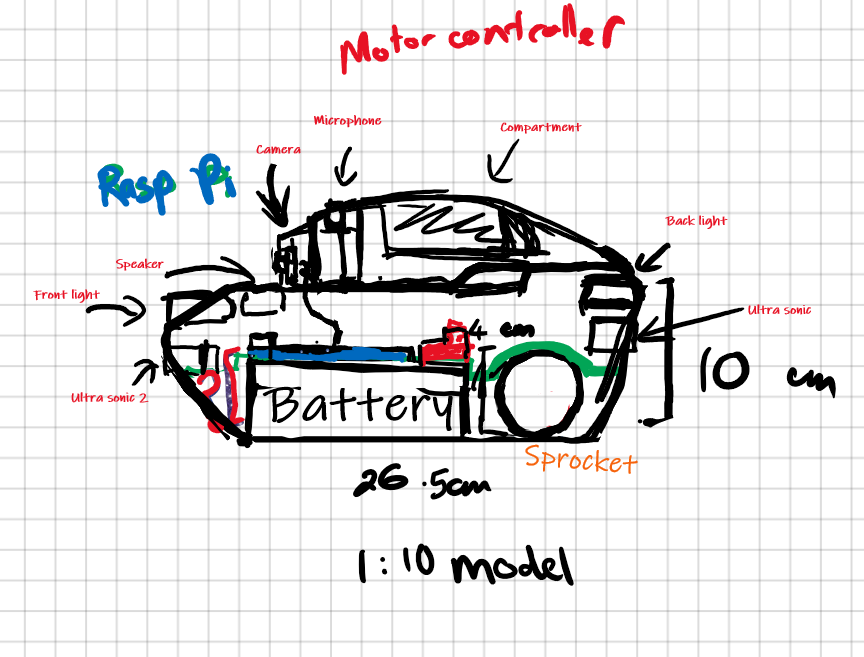 Motor controller
Microphone
Compartment
Camera
Rasp Pi
Back light
Speaker
Front light
Ultra sonic
4 cm
10 cm
Ultra sonic 2
Battery
Sprocket
26.5cm
1:10 model